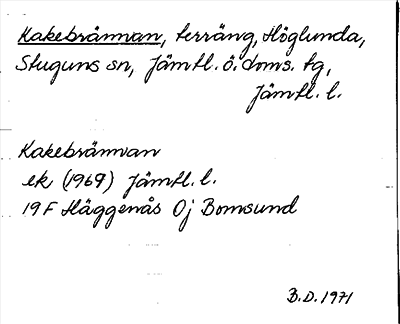 Kakebrännan, terräng, Höglunda,
Stuguns sn, Jämtl. ö. doms. tg,
Jämtl. l.
Kakebrännan
ek (1969) Jämtl. l.
19F Häggenås 0j Bomsund
B.D. 1971